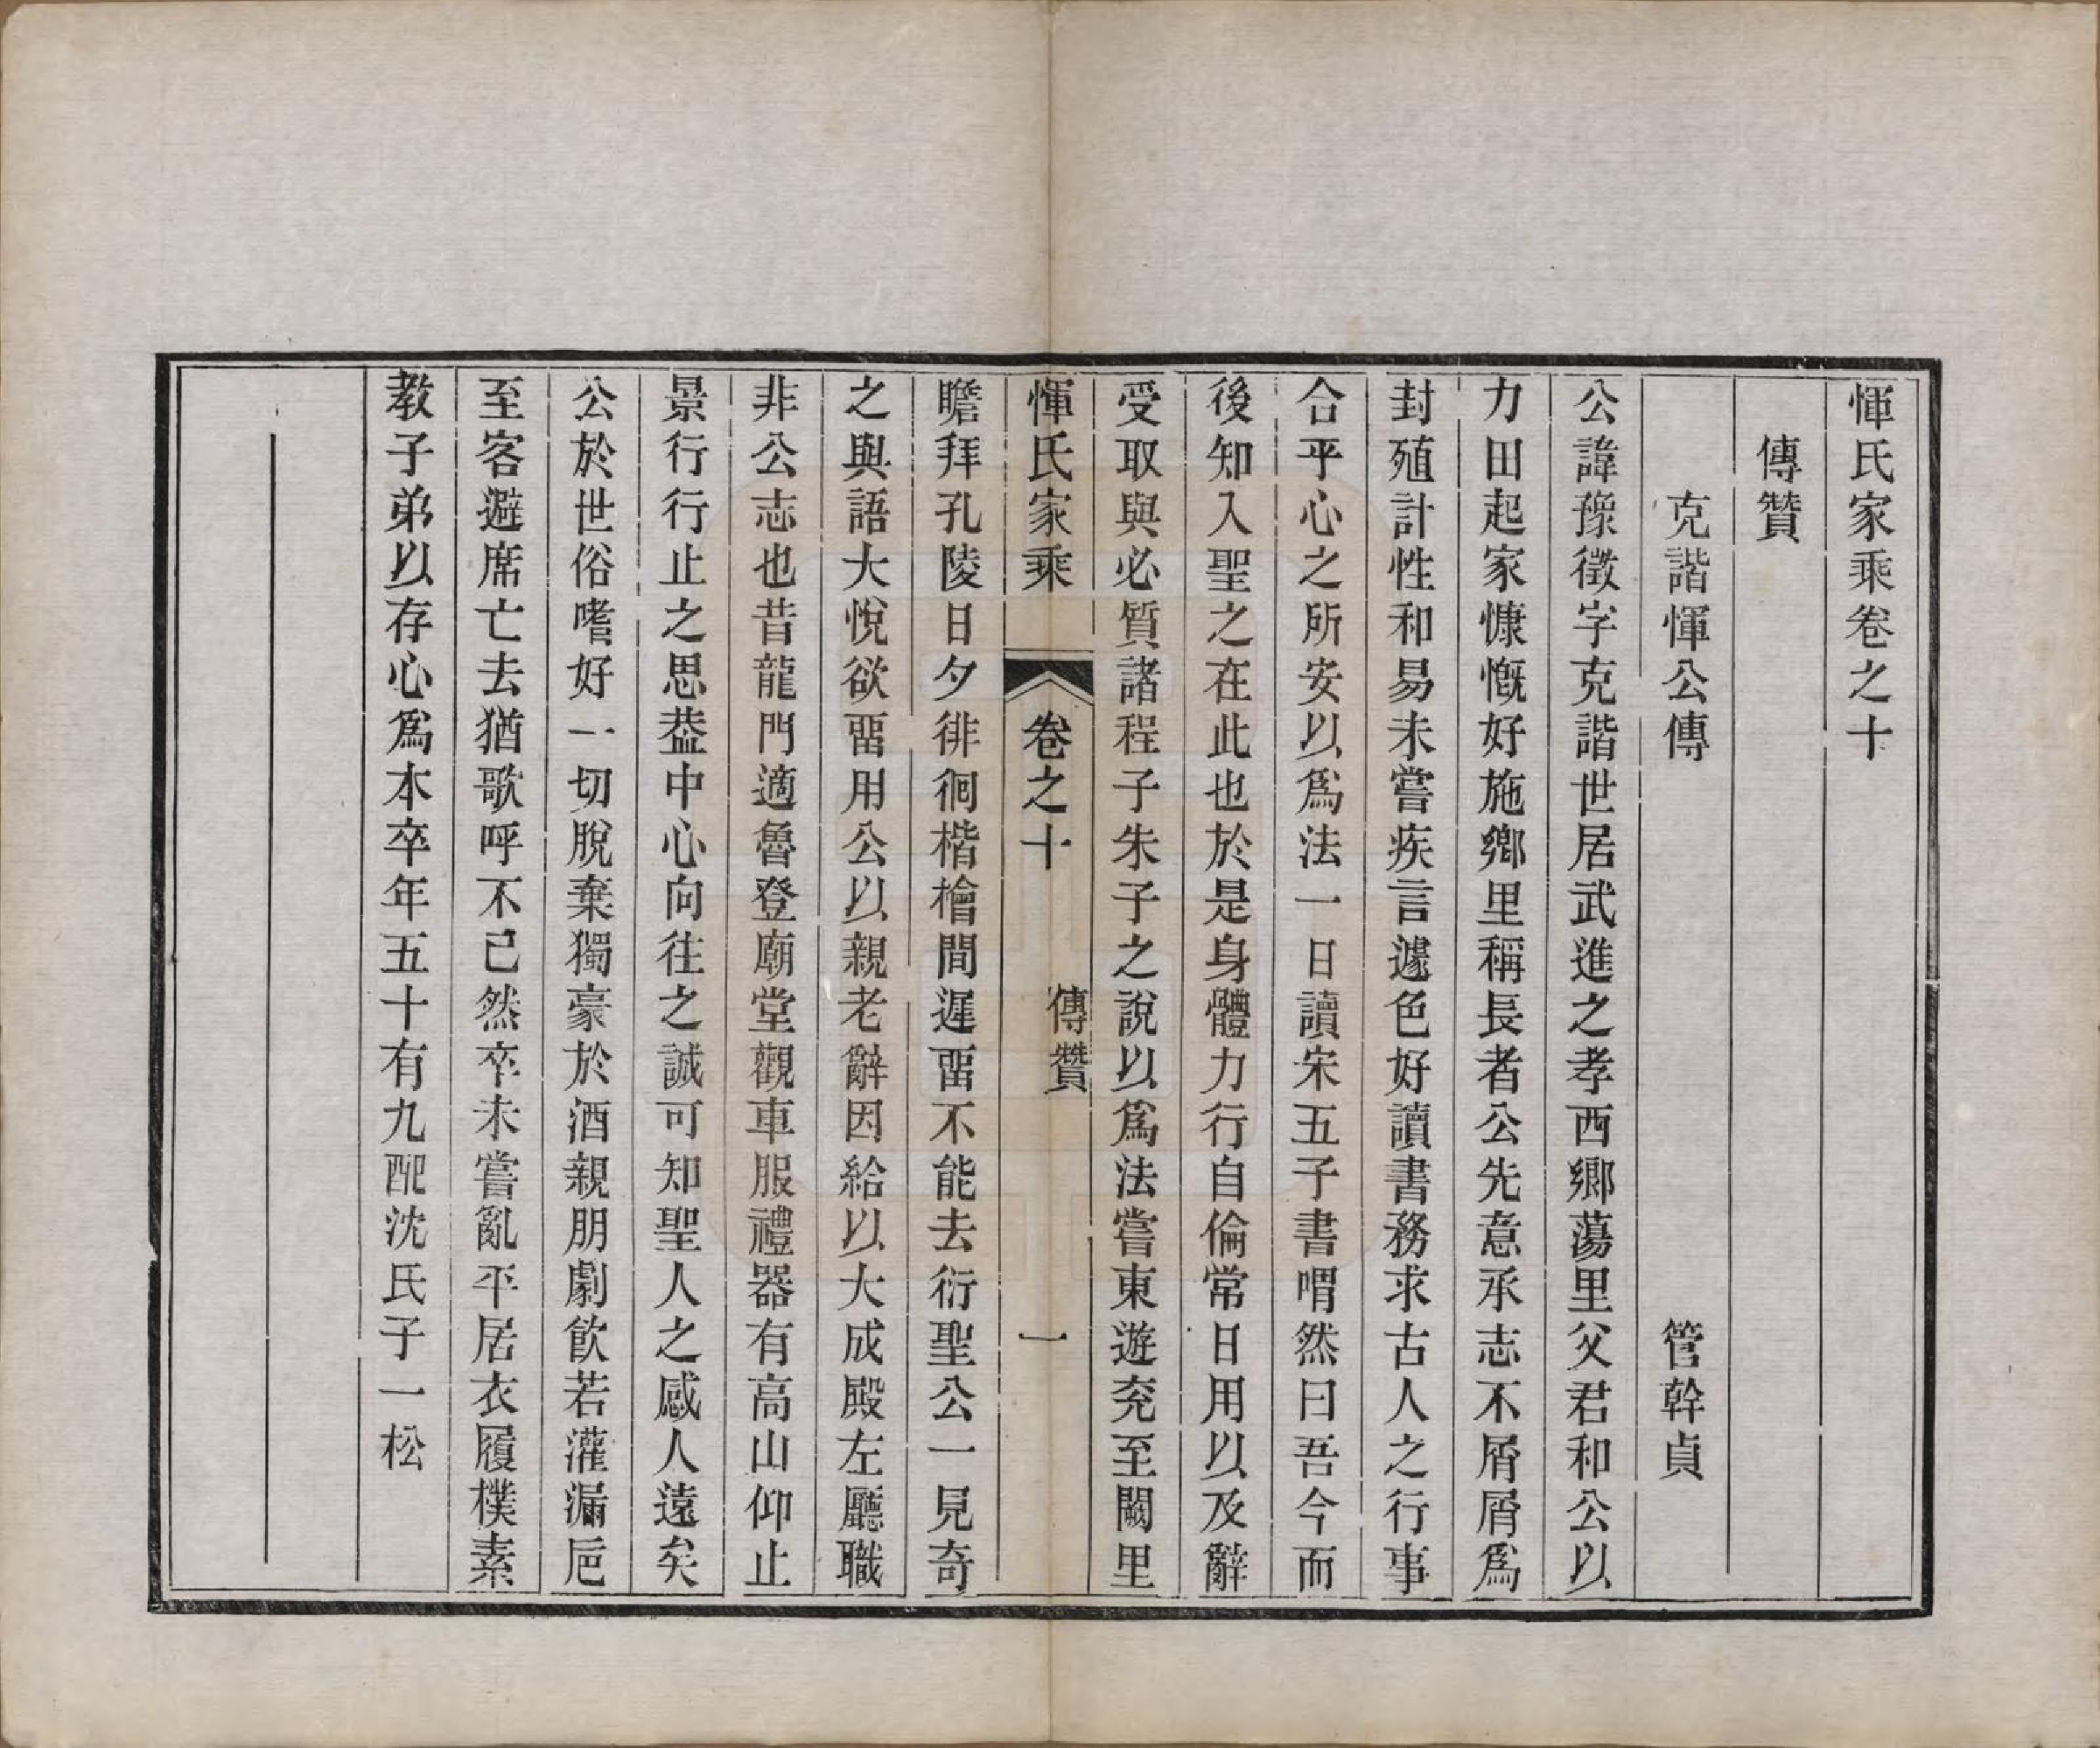 惲氏家乘卷之十
傳贊
克諧惲公傳　管幹貞
公諱豫徵字克諧世居武進之孝西鄉蕩里父君和公以
力田起家慷慨好施鄉里稱長者公先意承志不屑屑爲
封殖計性和易未嘗疾言遽色好讀書務求古人之行事
合乎心之所安以爲法一日讀宋五子書喟然曰吾今而
後知入聖之在此也於是身體力行自倫常日用以及辭
受取與必質諸程子朱子之說以爲法嘗東遊兖至闕里
惲氏家乘　卷之十　傳贊　一
瞻拜孔陵日夕徘徊楷檜間遲畱不能去衍聖公一見奇
之與語大悅欲畱用公以親老辭因給以大成殿左廳職
非公志也昔龍門適魯登廟堂觀車服禮器有高山仰止
景行行止之思葢中心向往之誠可知聖人之感人遠矣
公於世俗嗜好一切脫棄獨豪於酒親朋劇飮若灌漏巵
至客避席亡去猶歌呼不已然卒未嘗亂平居衣履樸素
教子弟以存心爲本卒年五十有九配沈氏子一松